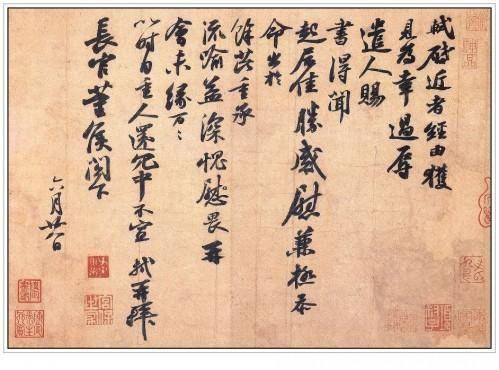 軾啓近者經由獲
見為幸過辱
遣人賜
書得聞
起居佳勝感慰兼極忝
命出於
餘芘重承
流喻益深愧慰畏再
會未緣万万
以時自重人還冗中不宣 軾再拜
長官董侯閤下
六月廿八日